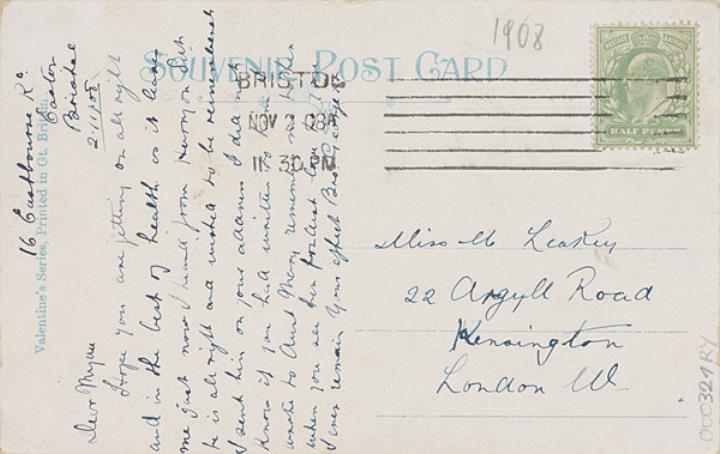 1908
SOUVENIR POST CARD
BRISTOL
NOV 2 08
11 30 PM
HALF PENNY
Miss M Leakey
22 Argyll Road
Kensington
London W.
000321RY
Valentine's Series, Printed in Gt. Britain
16 Eastbourne Rd
Easton
Bristol
2.11.08
Dear
I hope you are getting on all right
and in the best of health as it leaves
me just now I heard from
he is all right and wished to be remembered
I sent him on your address I did not
know if you had written to him
wrote to Aunt Mary remember me to her
when you see her
I ever remain Your affect Bro George